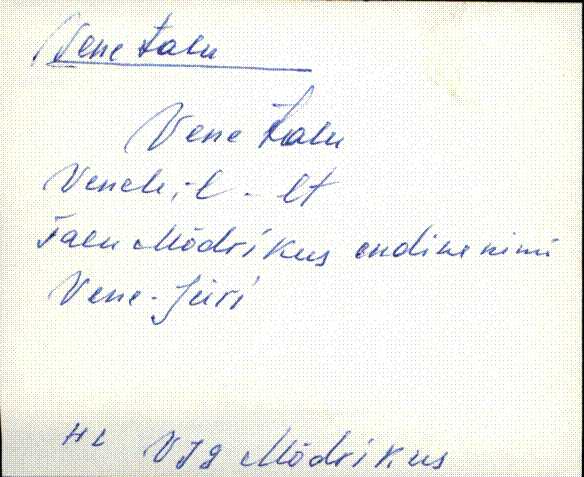 Vene talu
Vene talu
Venele, -l - lt
Talu Mõdrikus endine nimi
Vene-Jüri
HL VJg Mõdrikus